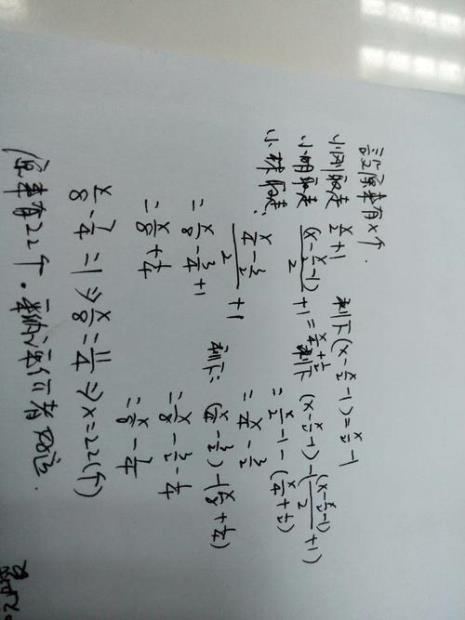 设原来有x个.
小刚取走 x/2+1 剩下(x-x/2-1)=x/2-1
小明取走 (x-x/2-1)/2+1=x/4+1/2 剩下 (x-x/2-1)-((x-x/2-1)/2+1)
=x/2-1-(x/4+1/2)
=x/4-3/2
小林取走: (x/4-3/2)/2+1 剩下: (x/4-3/2)-(x/8+1/4)
=x/8-3/4+1 =x/8-3/2-1/4
=x/8+1/4 =x/8-7/4
x/8-7/4=1⇒x/8=11/4⇒x=22(个)
原来有22个.